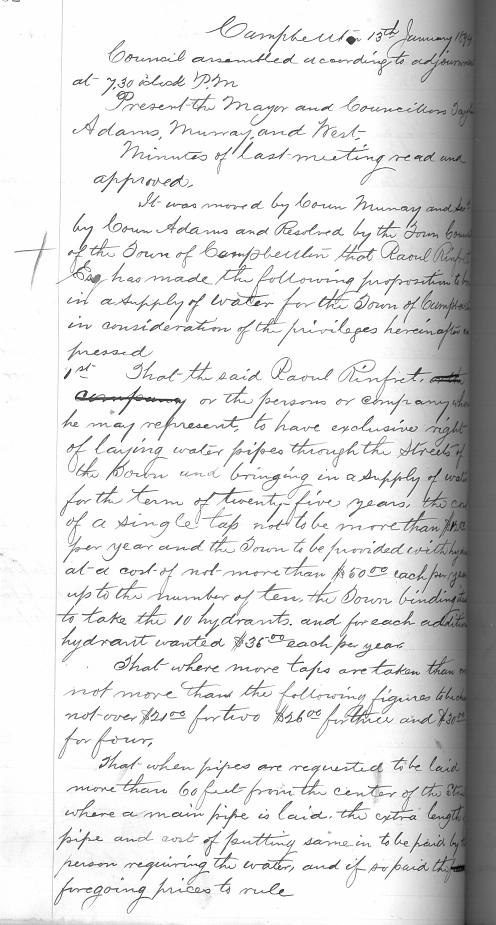 Campbellton 13th January 1894
Council assembled according to adjournm
at 7.30 o'clock P.M
Present the Mayor and Councillors Tay
Adams, Murray, and West.
Minutes of last meeting read and
approved.
It was moved by Coun Murray and
by Coun Adams and Resolved by the Town Coun
of the Town of Campbellton that Raoul Rinfret
Esq has made the following proposition to b
in a supply of water for the Town of Campbel
in consideration of the privileges hereinafter e
pressed
1st That the said Raoul Rinfret,
company or the persons or company who
he may represent, to have exclusive right
of laying water pipes through the Streets of
the Town and bringing in a supply of wate
for the term of twenty-five years, the co
of a single tap not to be more than
per year and the Town to be provided with hy
at a cost of not more than $50.00 each per year
up to the number of ten, the Town binding
to take the 10 hydrants. and for each addition
hydrant wanted $35.00 each per year
That where more taps are taken than o
not more than the following figures to be ch
not over $21.00 for two $26.00 for three and $30.00
for four,
That when pipes are requested to be laid
more than 60 feet from the center of the Stre
where a main pipe is laid. the extra length o
pipe and cost of putting same in to be paid by t
person requiring the water, and if so paid the
foregoing prices to rule